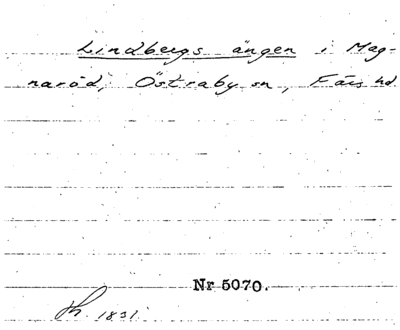 Lindbergs ängen i Mag-
naröd, Östraby sn, Färs hd
Nr 5070.
1831.